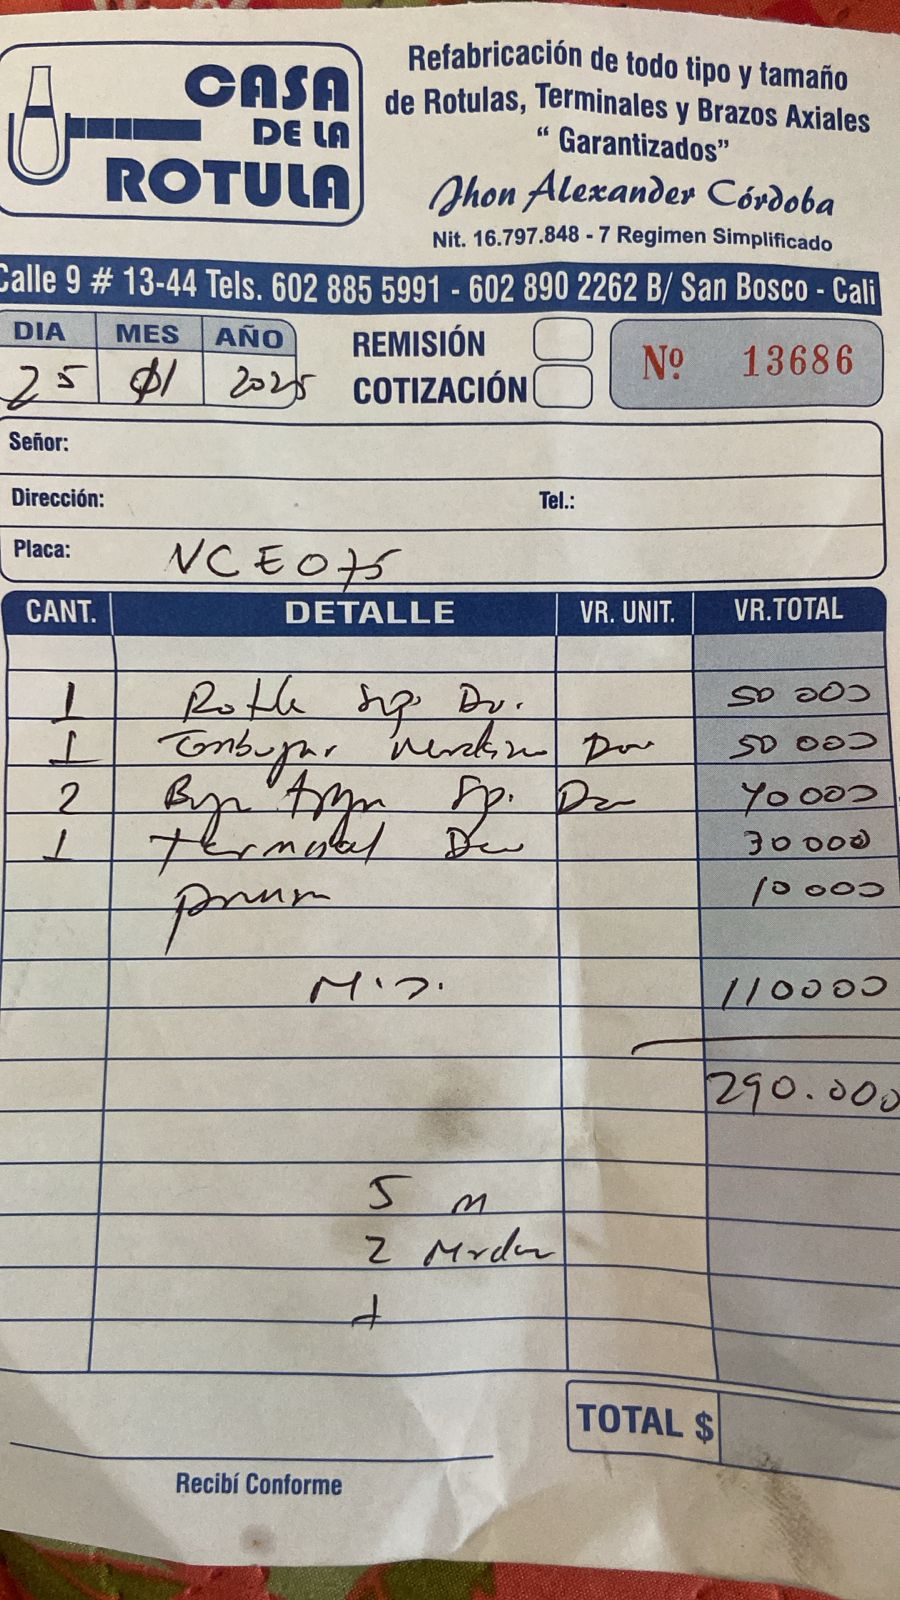 CASA
DE LA
ROTULA
Refabricación de todo tipo y tamaño
de Rotulas, Terminales y Brazos Axiales
“ Garantizados”
Jhon Alexander Córdoba
Nit. 16.797.848 - 7 Regimen Simplificado
Calle 9 # 13-44 Tels. 602 885 5991 - 602 890 2262 B/ San Bosco - Cali
DIA MES AÑO
25 01 2025
REMISIÓN
COTIZACIÓN
Nº 13686
Señor:
Dirección: Tel.:
Placa: NCE075
CANT. DETALLE VR. UNIT. VR.TOTAL
1 Sup. 50 000
1 50 000
2 Sp. 40 000
1 Terminal 30 000
10 000
110000
290.000
5 m
2
TOTAL $
Recibí Conforme